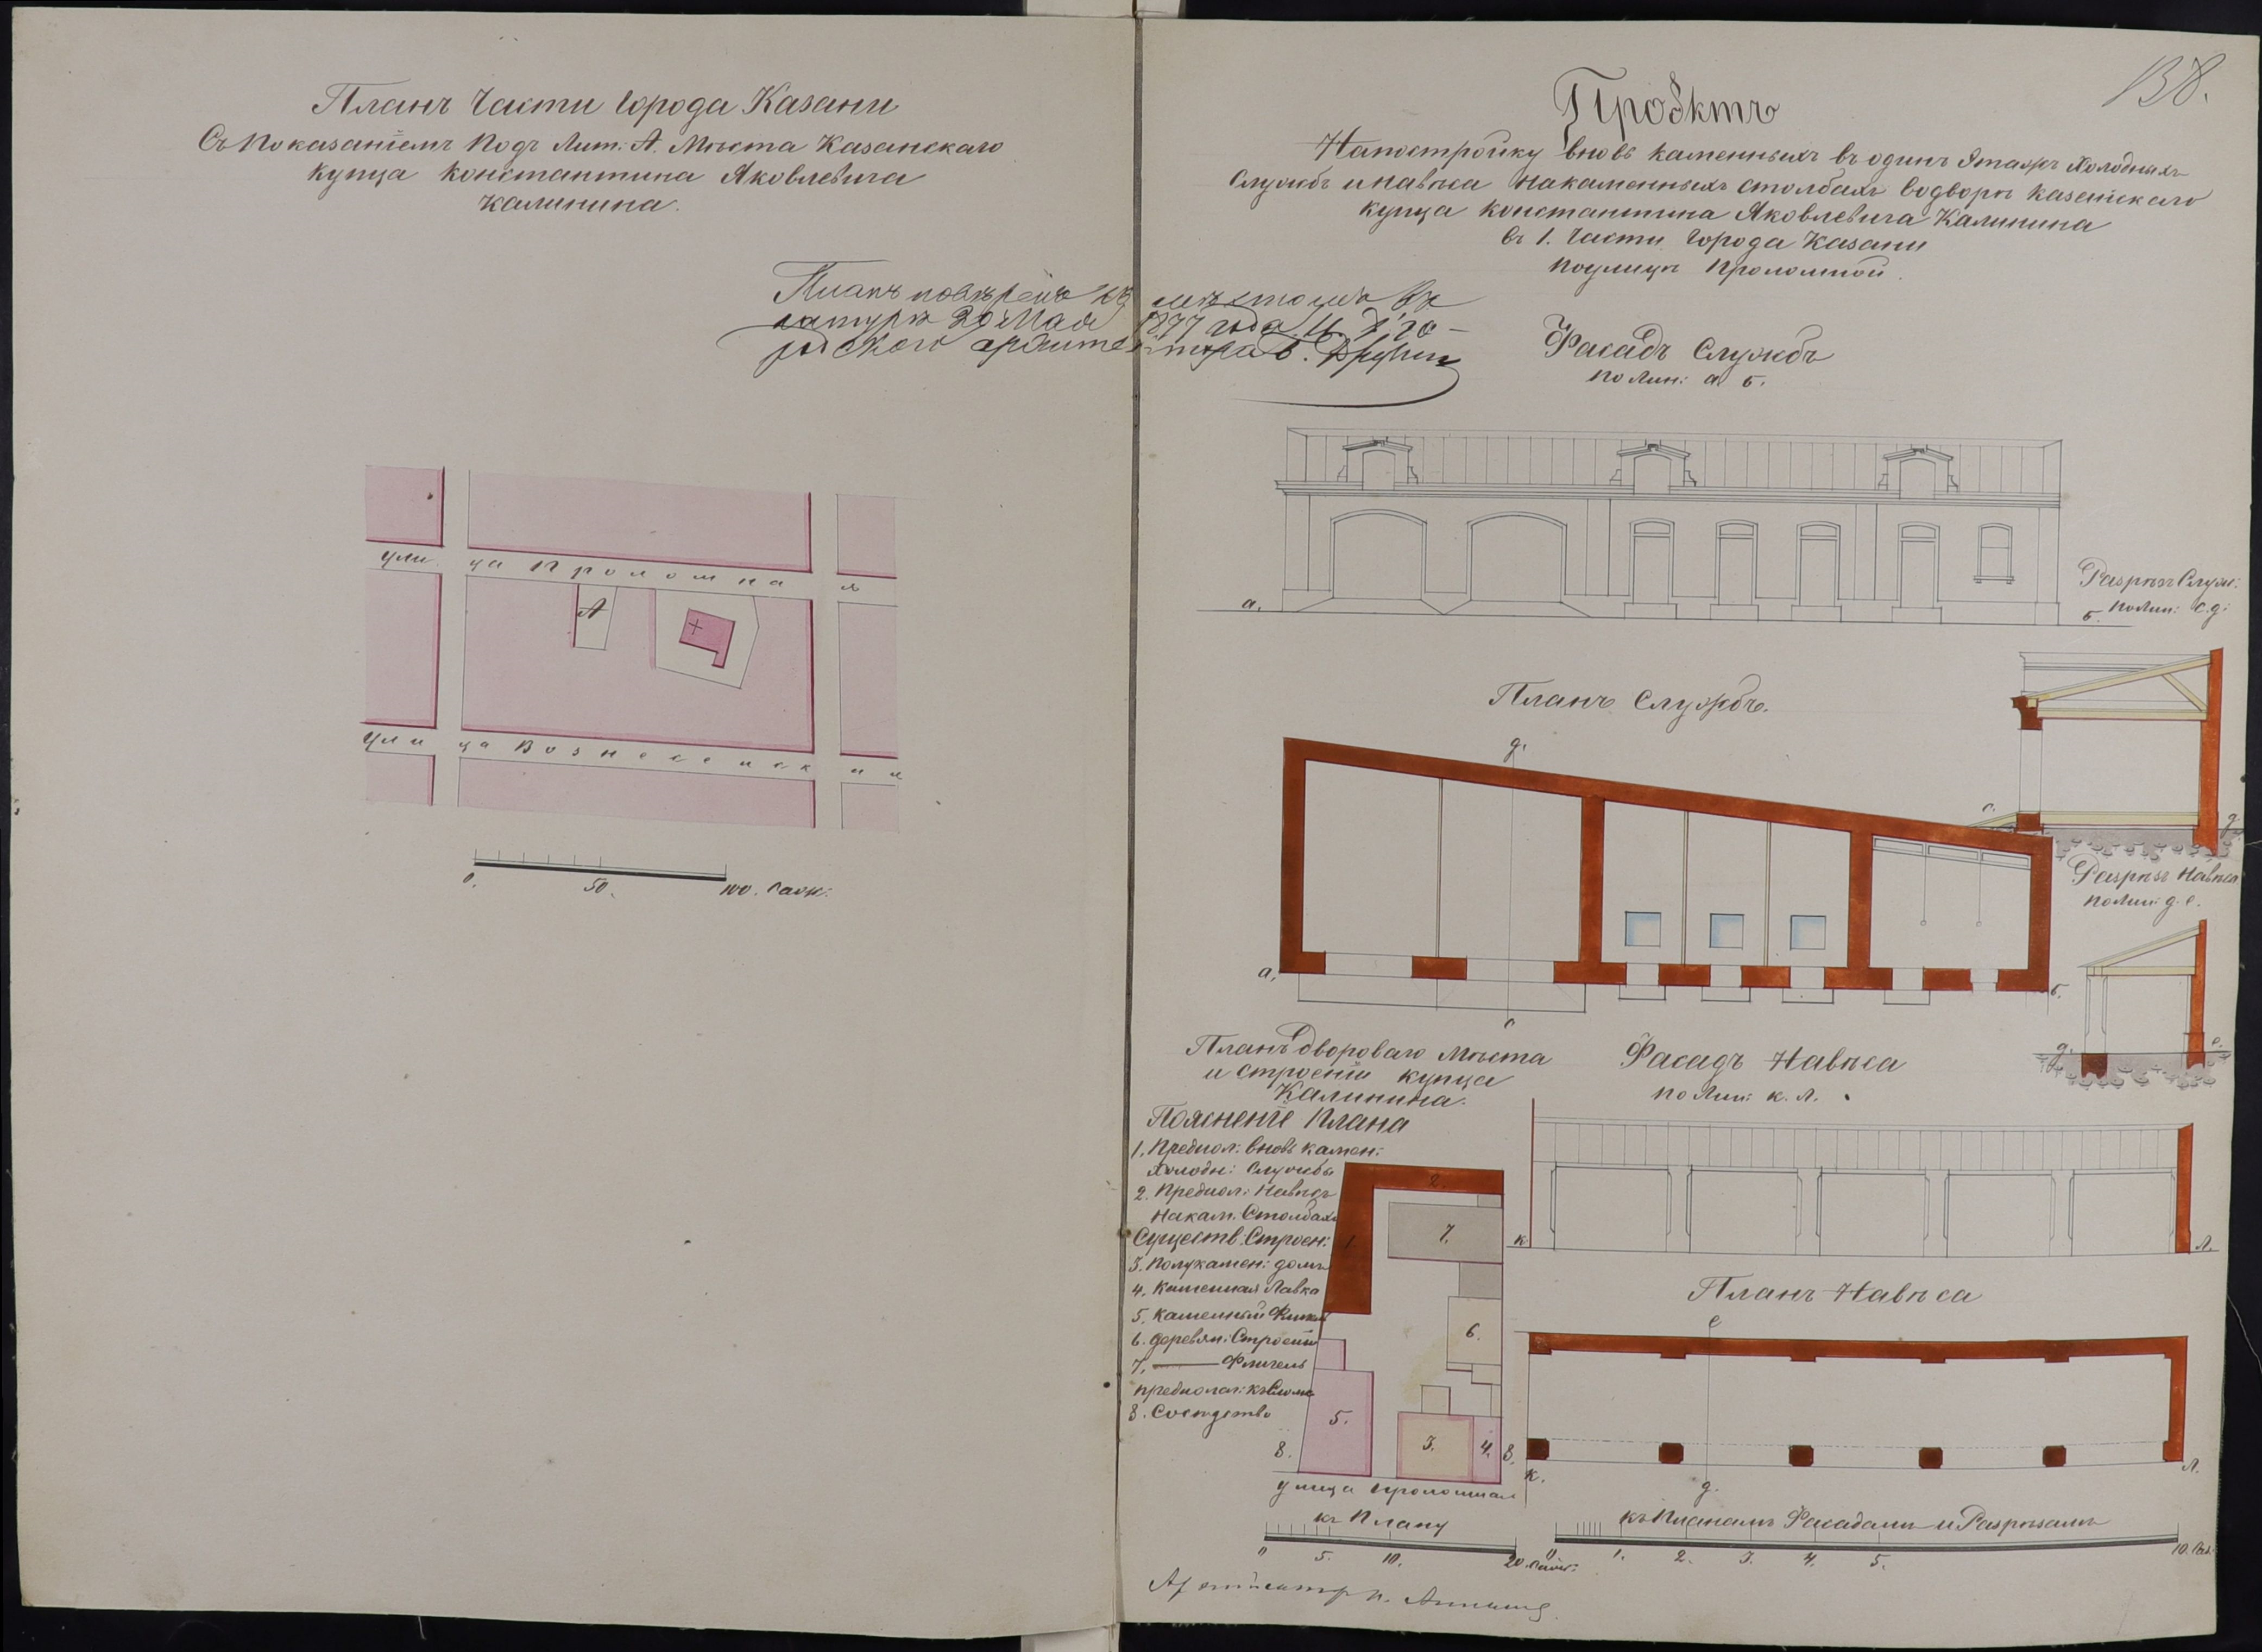 Планъ Части Города Казани
Съ Показанiемъ Подъ Лит: А. Мѣста Казанскаго
Купца Константина Яковлевича
Калинина.
Планъ повѣренъ съ мѣстомъ въ
натурѣ 29 Мая 1877 года И. д. Го-
родского архитектора
улица Проломная
А
улица Вознесенская
0. 50. 100. Саж:
138.
Проэктъ
На постройку вновь каменныхъ въ одинъ Этажъ Холодныхъ
Службъ и навѣса на каменныхъ столбахъ во дворѣ Казанскаго
купца Константина Яковлевича Калинина
въ 1. Части Города Казани
по улицѣ Проломной.
Фасадъ Службъ
по Лин: а. б.
а.
б.
Разрѣзъ Служ:
по Лин: с. д:
Планъ Службъ.
д.
с.
д.
а.
б.
с
Разрѣзъ Навѣса
по Лин: д. е.
д.
е.
Планъ Двороваго Мѣста
и Строенiй купца
Калинина.
Фасадъ Навѣса
по Лин: к. л.
к.
л.
Пояснение Плана
1. Предпол: вновь камен:
Холодн: Службы
2. Предпол: Навѣсъ
На кам. Столбахъ
Существ: Строен:
3. Полукамен: домъ
4. Каменная Лавка
5. Каменный Флигель
6. деревян: Строенiя
7. —— Флигель
предполаг: къ Слому
8. Сосѣдство
2.
1
7.
6.
5.
3.
4.
8.
8.
улица Проломная
Планъ Навѣса
е
к.
д.
л.
къ Плану
0 5. 10. 20. Саж:
къ Планамъ Фасадамъ и Разрѣзамъ
0 1. 2. 3. 4. 5. 10. Саж.
Архитекторъ П.